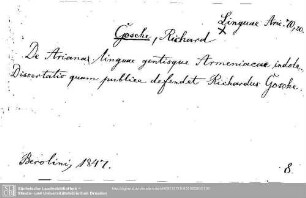 Linguae Aric. 70, 50.
Gosche, Richard
De Ariana linguae gentisque Armeniacae indole.
Dissertatio quam publice defendet Richardus Gosche.
Berolini, 1847.
8.
Sächsische Landesbibliothek -
Staats- und Universitätsbibliothek Dresden